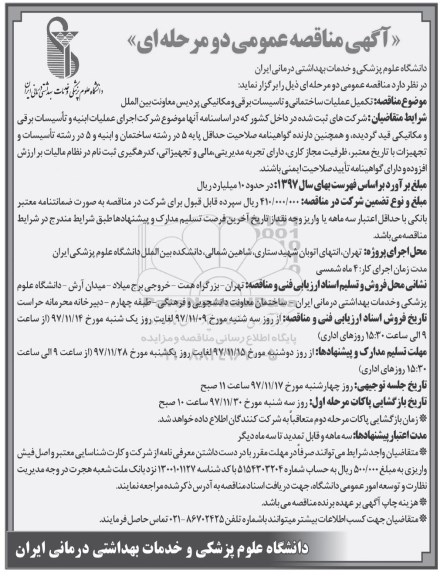 «آگهی مناقصه عمومی دو مرحله ای»
دانشگاه علوم پزشکی و خدمات بهداشتی درمانی ایران
دانشگاه علوم پزشکی و خدمات بهداشتی درمانی ایران
در نظر دارد مناقصه عمومی دو مرحله ای ذیل را برگزار نماید:
موضوع مناقصه: تکمیل عملیات ساختمانی و تاسیسات برقی و مکانیکی پردیس معاونت بین الملل
شرایط متقاضیان: شرکت های ثبت شده در داخل کشور که در اساسنامه آنها موضوع شرکت اجرای عملیات ابنیه و تأسیسات برقی
و مکانیکی قید گردیده، و همچنین دارنده گواهینامه صلاحیت حداقل پایه ۵ در رشته ساختمان و ابنیه و ۵ در رشته تأسیسات و
تجهیزات با تاریخ معتبر، ظرفیت مجاز کاری، دارای تجربه مدیریتی، مالی و تجهیزاتی، کدرهگیری ثبت نام در نظام مالیات بر ارزش
افزوده و دارای گواهینامه تأیید صلاحیت ایمنی باشند.
مبلغ برآورد براساس فهرست بهای سال ۱۳۹۷: در حدود ۱۰ میلیارد ریال
مبلغ و نوع تضمین شرکت در مناقصه: ۴۱۰/۰۰۰/۰۰۰ ریال سپرده قابل قبول برای شرکت در مناقصه به صورت ضمانتنامه معتبر
بانکی با حداقل اعتبار سه ماهه یا واریز وجه نقد از تاریخ آخرین فرصت تسلیم مدارک و پیشنهادها طبق شرایط مندرج در شرایط
مناقصه می باشد.
محل اجرای پروژه: تهران، انتهای اتوبان شهید ستاری، شاهین شمالی، دانشکده بین الملل دانشگاه علوم پزشکی ایران
مدت زمان اجرای کار: ۴ ماه شمسی
نشانی محل فروش و تسلیم اسناد ارزیابی فنی و مناقصه: تهران - بزرگراه همت - خروجی برج میلاد - میدان آرش - دانشگاه علوم
پزشکی و خدمات بهداشتی درمانی ایران - ساختمان معاونت دانشجویی و فرهنگی - طبقه چهارم - دبیرخانه محرمانه حراست
تاریخ فروش اسناد ارزیابی فنی و مناقصه: از روز سه شنبه مورخ ۹۷/۱۱/۰۹ لغایت روز یک شنبه مورخ ۹۷/۱۱/۱۴ (از ساعت
۹ الی ساعت ۱۵:۳۰ روزهای اداری)
مهلت تسلیم مدارک و پیشنهادها: از روز دوشنبه مورخ ۹۷/۱۱/۱۵ لغایت روز یکشنبه مورخ ۹۷/۱۱/۲۸ (از ساعت ۹ الی ساعت
۱۵:۳۰ روزهای اداری)
تاریخ جلسه توجیهی: روز چهارشنبه مورخ ۹۷/۱۱/۱۷ ساعت ۱۱ صبح
تاریخ بازگشایی پاکات مرحله اول: روز سه شنبه مورخ ۹۷/۱۱/۳۰ ساعت ۱۰ صبح
* زمان بازگشایی پاکات مرحله دوم متعاقباً به شرکت کنندگان اطلاع داده خواهد شد.
مدت اعتبار پیشنهادها: سه ماهه و قابل تمدید تا سه ماه دیگر
* متقاضیان واجد شرایط می توانند صرفاً در مهلت مقرر با در دست داشتن معرفی نامه از شرکت و کارت شناسایی معتبر و اصل فیش
واریزی به مبلغ ۵۰۰/۰۰۰ ریال به حساب شماره ۵۱۵۴۳۰۳۲۰۴ با کد شناسه ۱۳۰۰۱۰۱۱۲۷ نزد بانک ملت شعبه هجرت در وجه مدیریت
نظارت و توسعه امور عمومی دانشگاه، جهت دریافت اسناد مناقصه به آدرس ذکر شده مراجعه نمایند.
* هزینه چاپ آگهی بر عهده برنده مناقصه می باشد.
* متقاضیان جهت کسب اطلاعات بیشتر میتوانند با شماره تلفن ۸۶۷۰۲۴۲۵-۰۲۱ تماس حاصل فرمایند.
دانشگاه علوم پزشکی و خدمات بهداشتی درمانی ایران